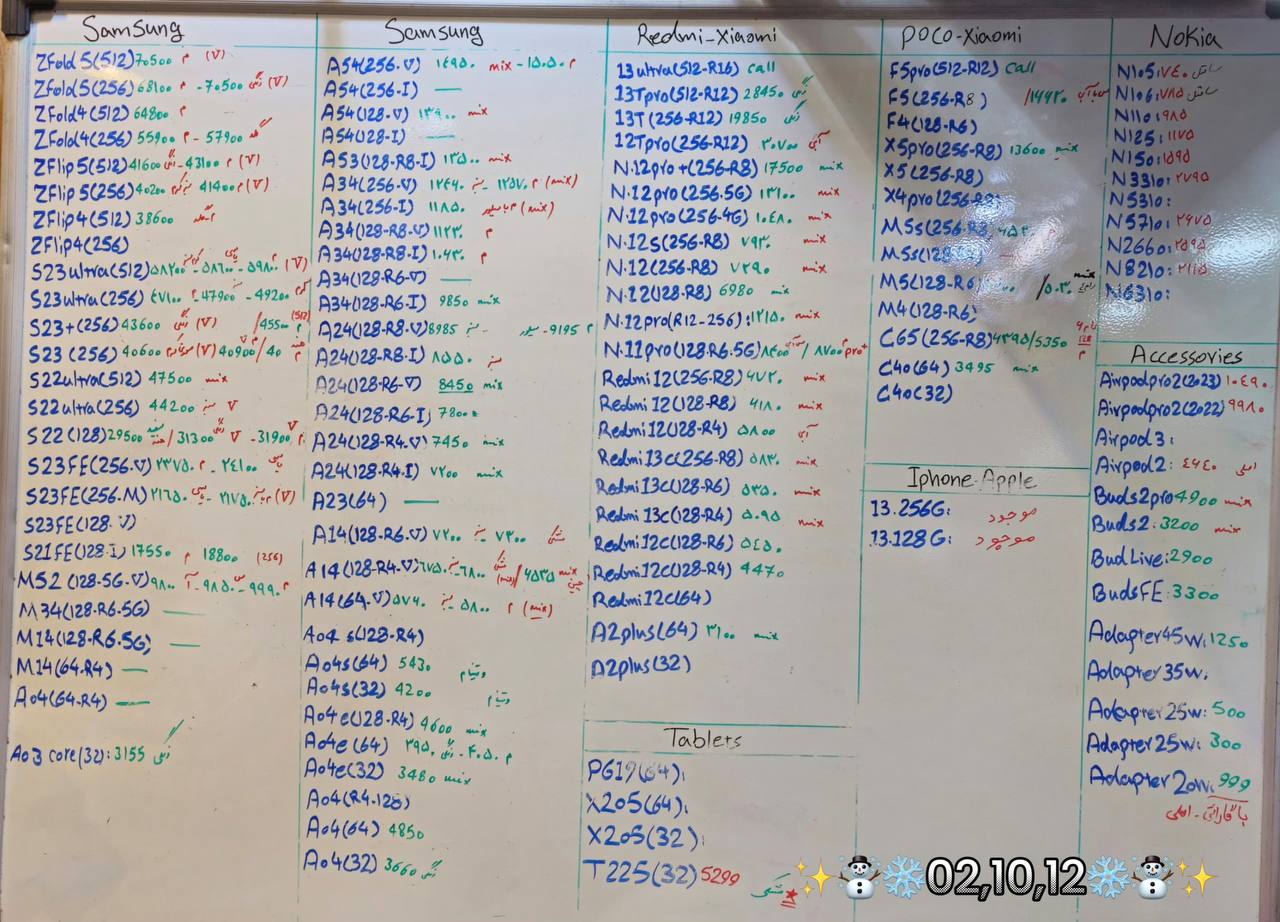 Samsung
ZFold5(512) 70500 م (V)
ZFold5(256) 68100 م - 70500 (V)
ZFold4(512) 64800 م
ZFold4(256) 55900 م - 57900
ZFlip5(512) 41600 - 43100 م (V)
ZFlip5(256) 40200 41400 م (V)
ZFlip4(512) 38600
ZFlip4(256)
S23ultra(512) ۵۸۲۰۰ - ۵۸۶۰۰ - ۵۹۸۰۰ م (V)
S23ultra(256) ٤٧١٠٠ - 47900 - 49200
S23+(256) 43600 (V) /45500 م (512)
S23 (256) 40600 (V) 40900/40
S22ultra(512) 47500 mix
S22ultra(256) 44200 سبز V
S22(128) 29500 سفید /31300 V - 31900 م V
S23FE(256.V) ۲۳۷۵۰ م - ۲٤۱۰۰
S23FE(256.M) ۲۱۶۵۰ - ۲۱۷۵۰ (V)
S23FE(128.V)
S21FE(128.I) 17550 م 18800 (256)
M52(128-5G.V) ۹۸۰۰ - ۹۸۵۰ - ۹۹۹۰ م
M34(128-R6.5G) —
M14(128-R6.5G) —
M14(64.R4) —
A04(64-R4) —
A03 core(32): 3155
Samsung
A54(256.V) ۱٤۹۵۰ mix - ۱۵۰۵۰ م
A54(256-I) —
A54(128.V) ۱۳۹۰۰ mix
A54(128-I) —
A53(128-R8-I) ۱۲۵۰۰ mix
A34(256.V) ۱۲٤۹۰ سبز - ۱۲۵۷۰ م (mix)
A34(256-I) ۱۱۸۵۰ (mix)
A34(128-R8-V) ۱۱۲۳۰ م
A34(128-R8.I) ۱۰۴۳۰ م
A34(128-R6-V) —
A34(128-R6-I) 9850 mix
A24(128-R8.V) 8985 سبز - 9195 م
A24(128-R8-I) ۸۵۵۰ سبز
A24(128-R6-V) 8450 mix
A24(128-R6-I) 7800
A24(128-R4.V) 7450 mix
A24(128-R4.I) ۷۲۰۰ mix
A23(64) —
A14(128-R6.V) ۷۲۰۰ سبز - ۷۳۰۰ مشکی
A14(128-R4.V) ۶۷۵۰ - ۶۸۰۰ / ۶۵۳۵ mix
A14(64.V) ۵۷۶۰ سبز - ۵۸۰۰ م (mix)
A04 s(128-R4)
A04s(64) 5430 ویتنام
A04s(32) 4200 ویتنام
A04e(128-R4) 4600 mix
A04e(64) ۳۹۵۰ - ۴۰۵۰ م
A04e(32) 3480 mix
A04(R4-128)
A04(64) 4850
A04(32) 3660
Redmi-Xiaomi
13ultra(512-R16) call
13Tpro(512-R12) 28450
13T(256-R12) 19850
12Tpro(256-R12) ۲۰۷۰۰ آبی
N.12pro+(256-R8) 17500 mix
N.12pro(256.5G) ۱۳۱۰۰ mix
N.12pro(256-4G) ۱۰٤۸۰ mix
N.12s(256-R8) ۷۹۳۰ mix
N.12(256-R8) ۷۲۹۰ mix
N.12(128-R8) 6980 mix
N.12pro(R12-256): ۱۲۱۵۰ mix
N.11pro(128.R6.5G) ۸۴۰۰ / ۸۷۰۰ pro+
Redmi12(256-R8) ۶۷۲۰ mix
Redmi 12(128-R8) ۶۱۸۰ mix
Redmi12(128-R4) ۵۸۰۰ آبی
Redmi13c(256-R8) ۵۸۳۰ mix
Redmi13c(128-R6) ۵۳۵۰ mix
Redmi 13c(128-R4) ۵۰۹۵ mix
Redmi12c(128-R6) ۵٤۵۰
Redmi12c(128-R4) 4470
Redmi12c(64)
A2plus(64) ۳۱۰۰ mix
A2plus(32)
Tablets
PG19(64):
X205(64):
X205(32):
T225(32) 5299 مشکی
POCO-Xiaomi
F5pro(512-R12) Call
F5(256-R8) /۱۶۶۲۰
F4(128-R6)
X5pro(256-R8) 13600 mix
X5(256-R8)
X4pro(256-R8)
M5s(256-R8)
M5s(128
M5(128-R6) /۵۰۳۰ mix
M4(128-R6)
C65(256-R8) ۴۳۹۵/5350
C40(64) 3495 mix
C40(32)
Iphone-Apple
13.256G: موجود
13.128G: موجود
Nokia
N105: ۷٤۰
N106: ۷۸۵
N110: ۹۸۵
N125: ۱۱۷۵
N150: ۱۵۹۵
N3310: ۲۷۹۵
N5310:
N5710: ۲۶۷۵
N2660: ۲۵۹۵
N8210: ۲۱۱۵
N6310:
Accessories
Airpodpro2(2023) ۱۰٤۹۰
Airpodpro2(2022) ۹۹۸۰
Airpod3:
Airpod2: ٤٤٤۰ اصلی
Buds2pro 4900 mix
Buds2: 3200 mix
Bud Live: 2900
BudsFE: 3300
Adapter45w: 1250
Adapter35w:
Adapter25w: 500
Adapter25w: 300
Adapter20w: 999
باگارانتی - اصلی
02,10,12